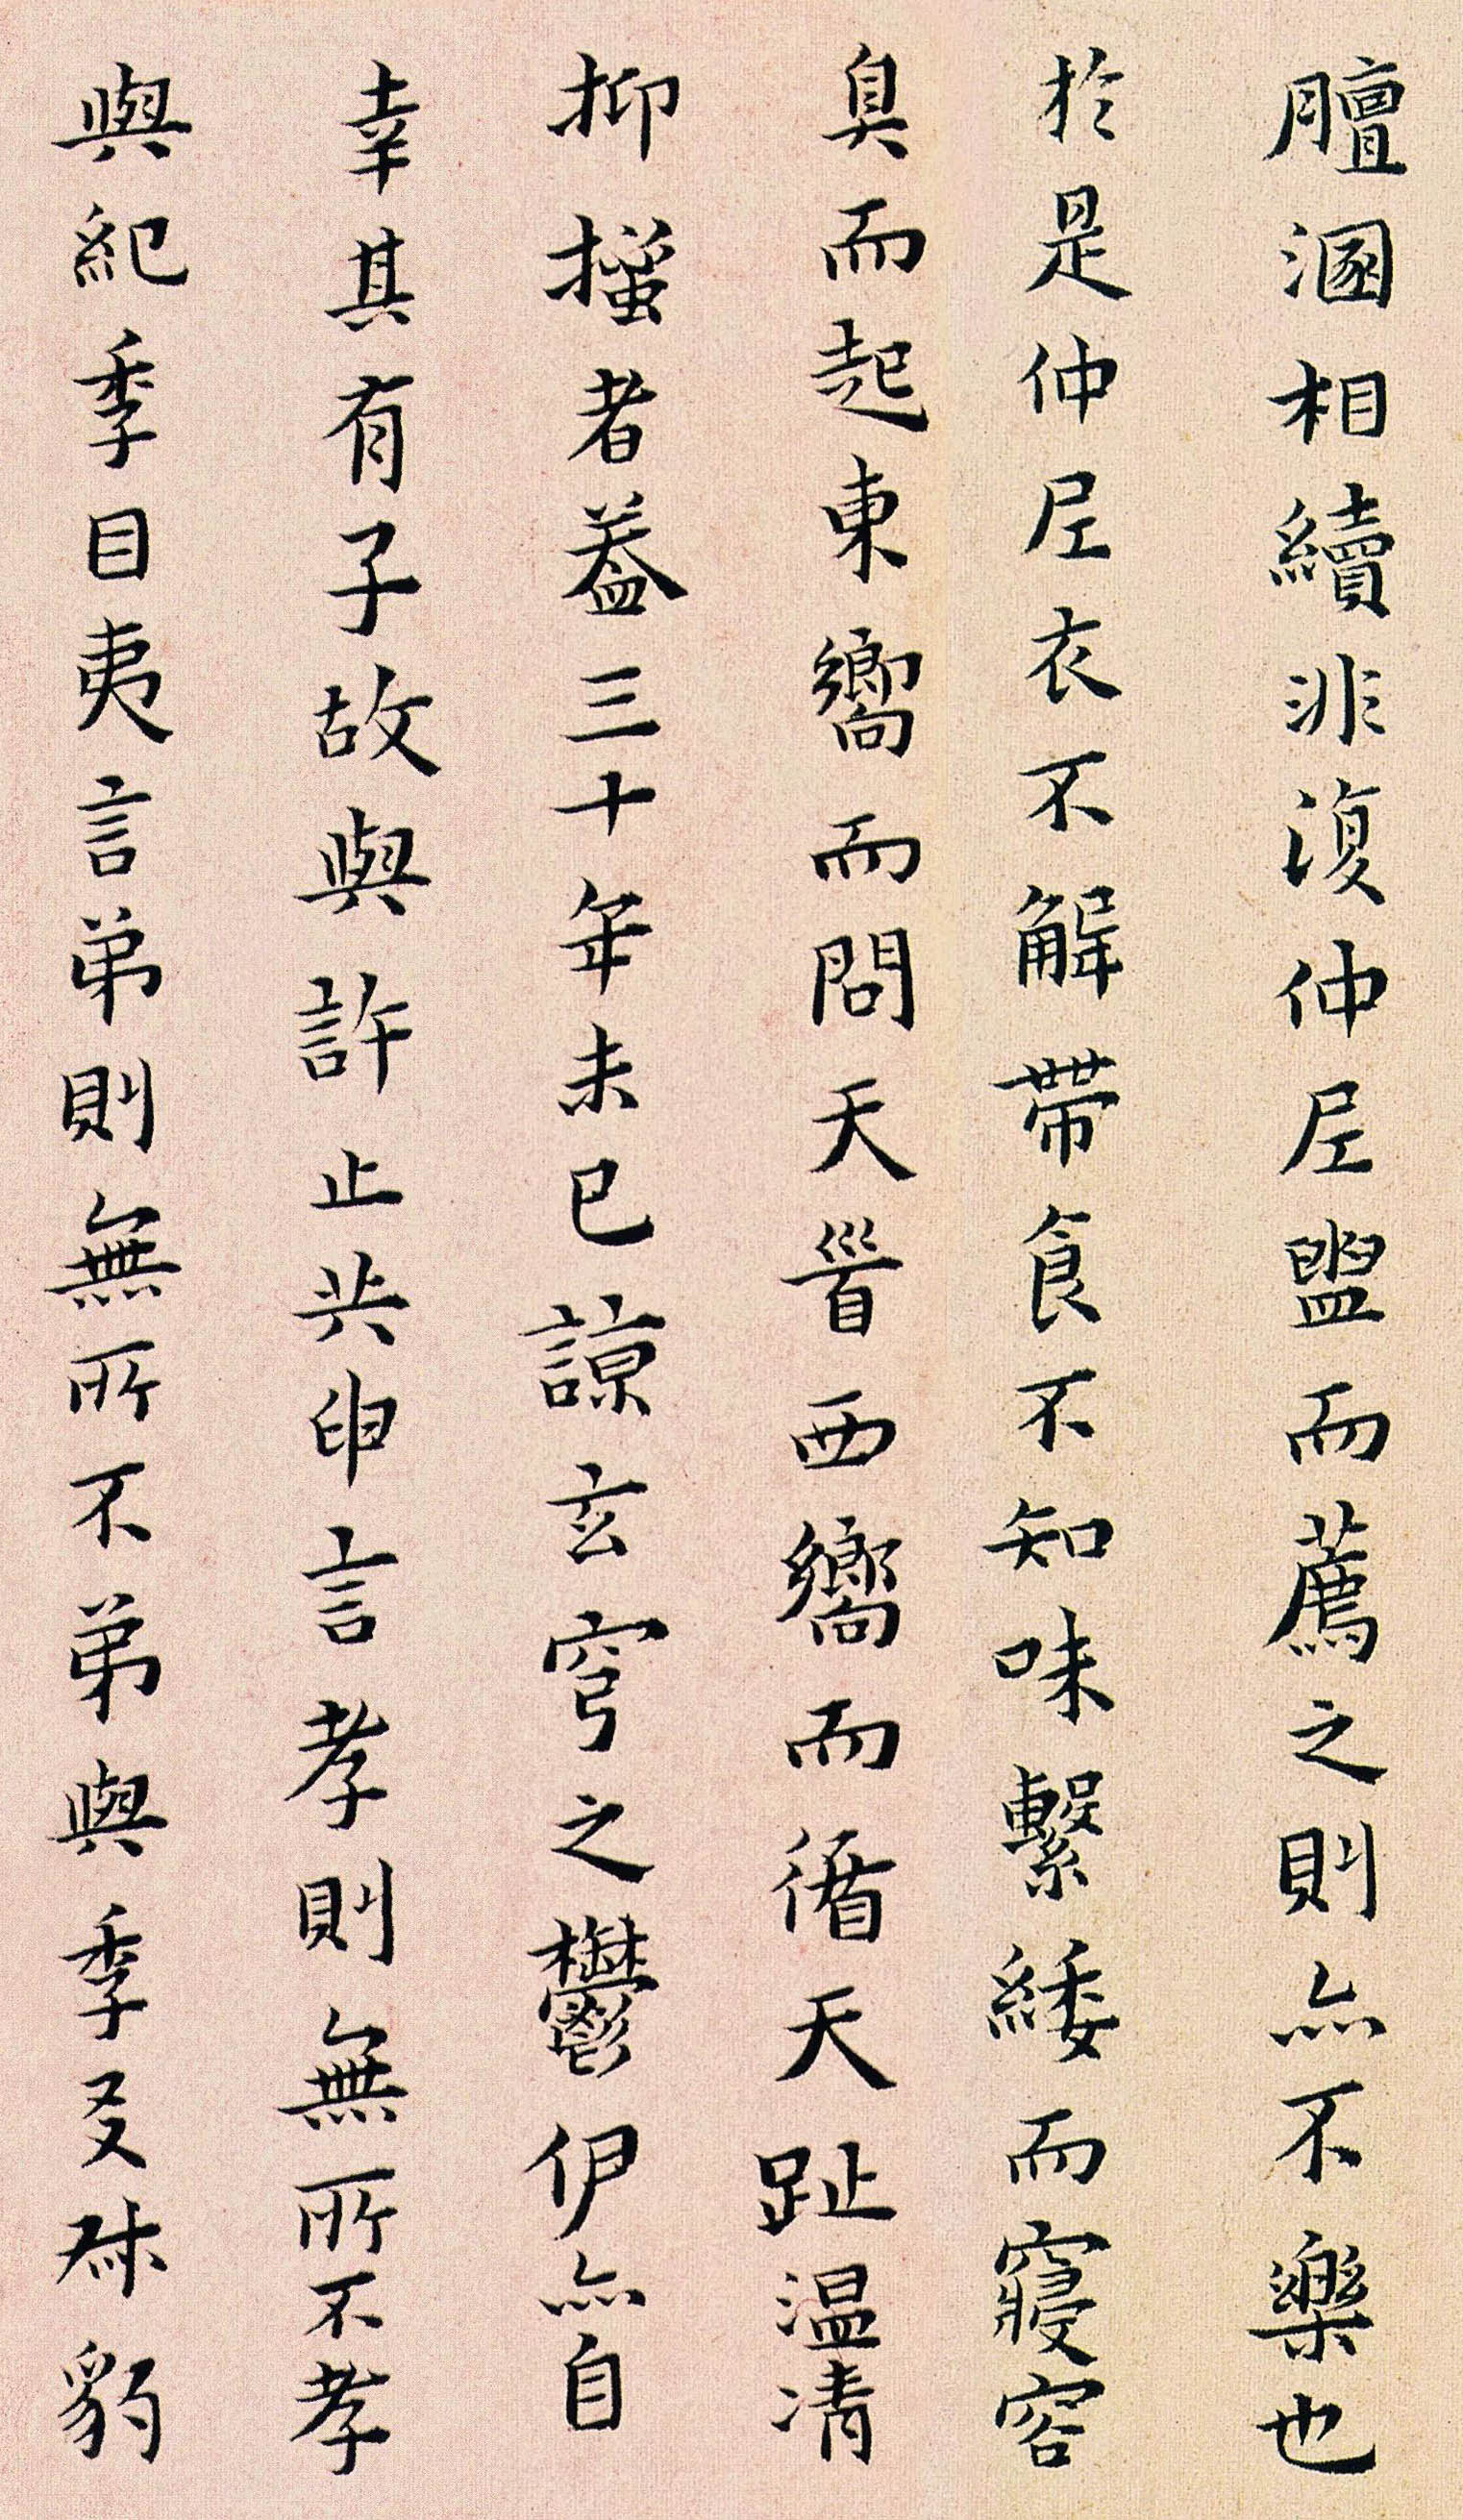 膻溷相續非復仲尼盥而薦之則亦不樂也
於是仲尼衣不解帶食不知味繫緌而寢容
臭而起東嚮而問天首西嚮而循天趾温凊
抑搔者葢三十年未已諒玄穹之鬱伊亦自
幸其有子故與許止共申言孝則無所不孝
與紀季目夷言弟則無所不弟與季友叔豹